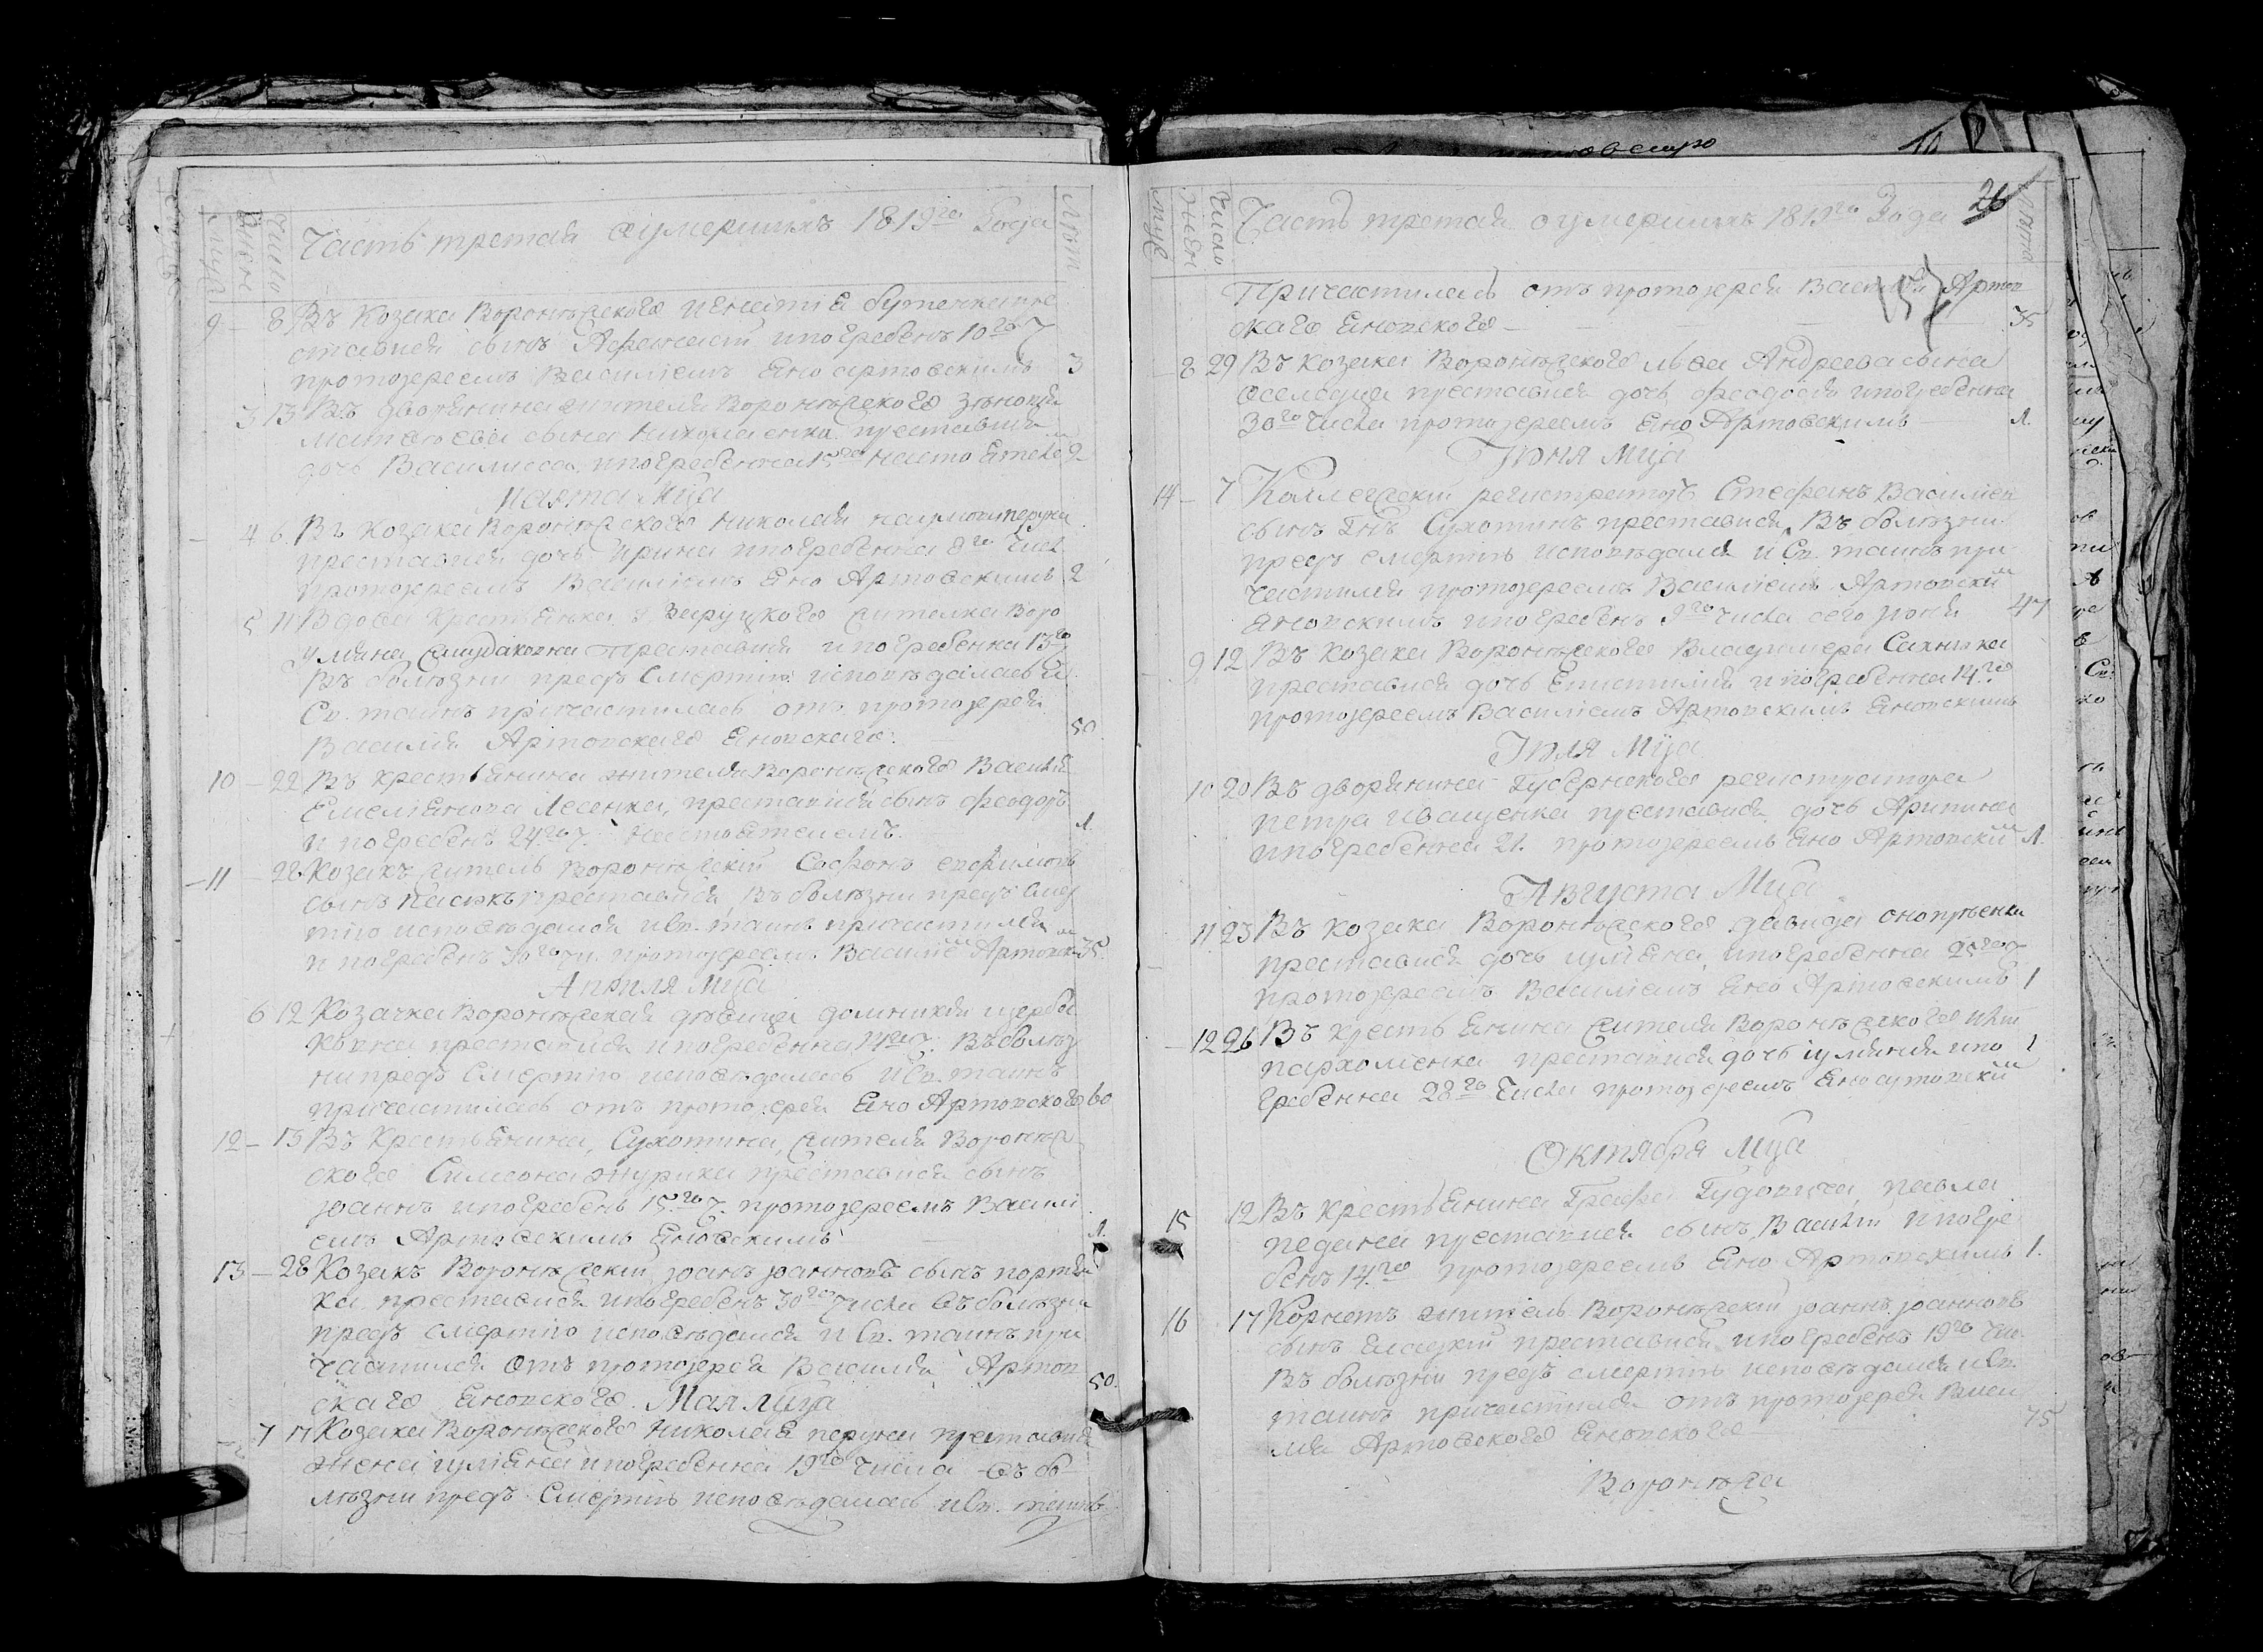 Часть третая оумершихъ 1819го Года
Лѣт
Число
9 – 8 Въ Козака Воронѣжского Игнатія бутенка пре
ставися сынъ Афанасій ипогребенъ 10го ч
протоіереемъ Василіемъ Яно артовскимъ 3
3 13 Въ дворянина жителя Воронѣжского Зѣновія
Матвѣева сына Николаенка преставися
дочь Василисса ипогребенна 15го настоятеле 2
Марта Мца
4 6 Въ козака Воронѣжского Николая
преставися дочь Ирина ипогребенна 8го Числ
протоіереемъ Василіемъ Яно Артовскимъ 2
5 11 Вдова Крестьянка жителка Воро
Уляна преставися ипогребенна 13го
Въ болѣзни предъ Смертію исповѣдалась и
Св. таинъ причастилась отъ протоіерея
Василія Артовскаго Яновскаго 50
10 – 22 Въ крестьянина жителя Воронѣжского Василія
Емеліянова Лесенка, преставися сынъ Феодоръ
и погребенъ 24го ч. настоятелемъ 1.
11 – 28 Козакъ житель Воронѣжскій Софонъ евфимовъ
сынъ преставися, Въ болѣзни предъ сме
ртію исповѣдался иСв. таинъ причастился
и погребенъ 30го чи. протоіереемъ Василіе Артовск 35.
Априля Мца
6 12 Козачка Воронѣжская
преставися ипогребенна 14го ч. Въ болѣз
ни предъ Смертію исповѣдалась иСв. таинъ
причастилась отъ протоіерея Яно Артовского 60
12 – 13 Въ Крестьянина, Сухотина, жителя Воронѣж
ского Симеона Журика преставися сынъ
Іоаннъ ипогребенъ 15го ч. протоіереемъ Васили
емъ Артовскимъ Яновскимъ 1.
13 – 28 Козакъ Воронѣжскій Іоанъ Іоанновъ сынъ
преставися ипогребенъ 30го числа Въ болѣзни
предъ смертію исповѣдался и Св. таинъ при
частился отъ протоіерея Василія Артов
скаго Яновского. 50.
Мая Мца
7 17 Козака Воронѣжского Николая преставися
жена іуліяна ипогребенна 19го числа Въ бо
лѣзни предъ Смертію исповѣдалась иСв. таинъ
26
157
Часть третая оумершихъ 1819го Года
Число
Лѣта
Причастилась отъ протоіерея Василія Артов
скаго Яновского 35
8 29 Въ козака Воронѣжского Льва Андреева сына
оселедця преставися дочь феодосія ипогребенна
30го Числа протоіереемъ Яно Артовскимъ 1.
Іюня Мца
14 – 7 Коллегскій регистраторъ Стефанъ Василіев
сынъ Гнъ Сухотинъ преставися, Въ болѣзни
предъ смертію исповѣдался и Св. таинъ при
частился протоіереемъ Василіемъ Артовски
Яновскимъ ипогребенъ 9го числа сего іюня 47
9 12 Въ Козака Воронѣжского Владимера Сахнѣка
преставися дочь Епистимія ипогребенна 14го
протоіереемъ Василіемъ Артовскимъ Яновскимъ
Іюля Мца
10 20 Въ дворянина Губернского регистратора
Петра Иващенка преставися дочь Арипина
ипогребенна 21. протоіереемъ Яно Артовски 1.
Августа Мца
11 23 Въ козака Воронѣжского Давида онопрѣенка
преставися дочь іуліяна, ипогребенна 25го ч
протоіереемъ Василіемъ Яно Артовскимъ 1
12 26 Въ крестьянина жителя Воронѣжского
пархоменка преставися дочь іуліянія ипо 1
гребенна 28го Числа протоіереемъ Яноартовски
Октября Мца
15 12 Въ крестьянина Графа Гудовича, павла
преставися сынъ Василій ипогре
бенъ 14го протоіереемъ Яно Артовскимъ 1.
16 17 Корнетъ житель Воронѣжскій іоаннъ іоанновъ
сынъ преставися ипогребенъ 19го Чис
Въ болѣзни предъ смертію исповѣдался иСв.
таинъ причастился отъ протоіерея Васи
лія Артовского Яновского 75
Воронѣжа